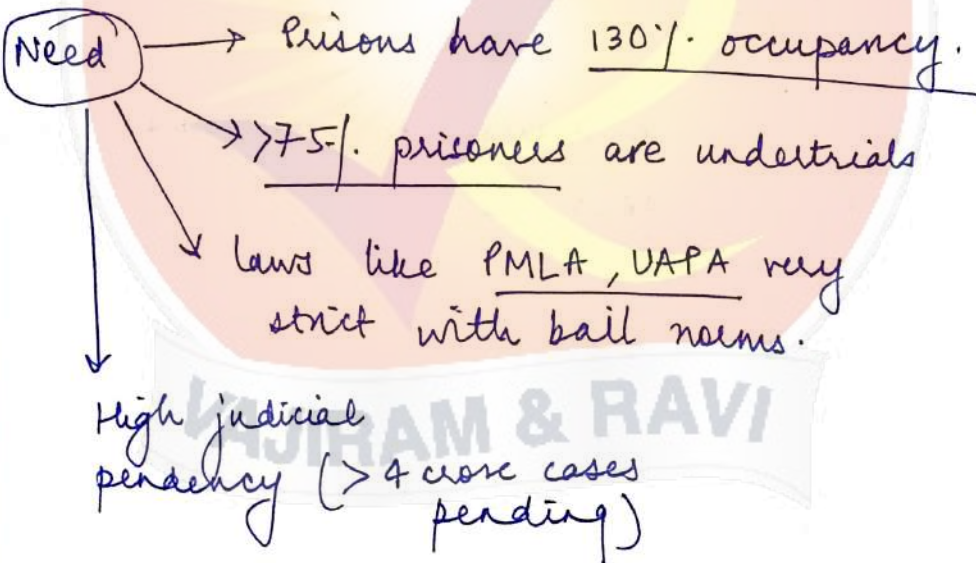 Need → Prisons have 130% occupancy.
→ >75% prisoners are undertrials
→ laws like PMLA, UAPA very
strict with bail norms.
VAJIRAM & RAVI
High judicial
pendency (> 4 crore cases
pending)